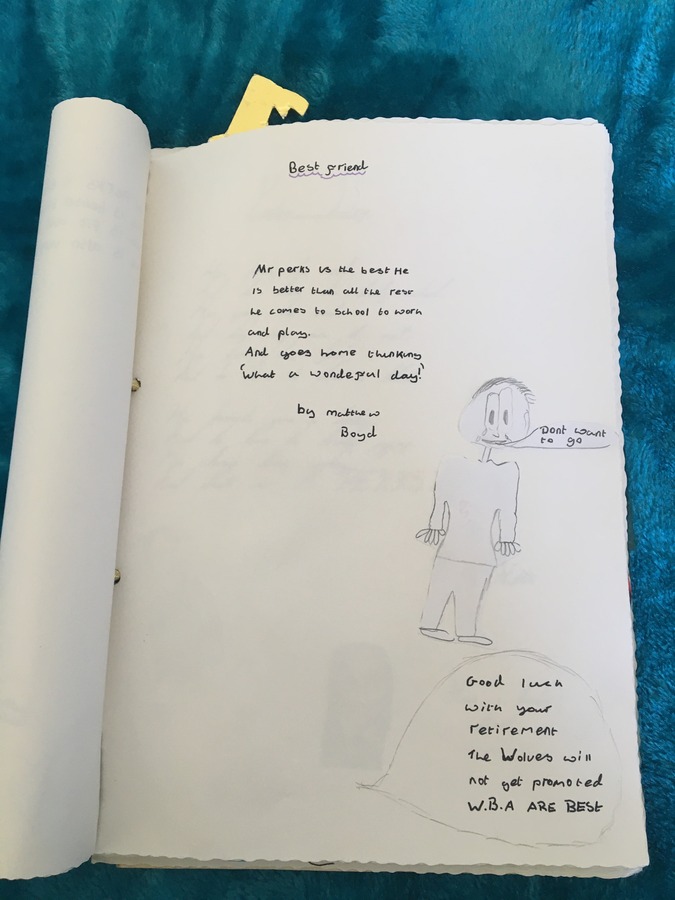 Best friend
Mr perks is the best He
is better than all the rest
he comes to school to work
and play.
And goes home thinking
'what a wondeful day!'
by matthew
Boyd
Dont want
to go
Good luck
with your
retirement
The Wolves will
not get promoted
W.B.A ARE BEST